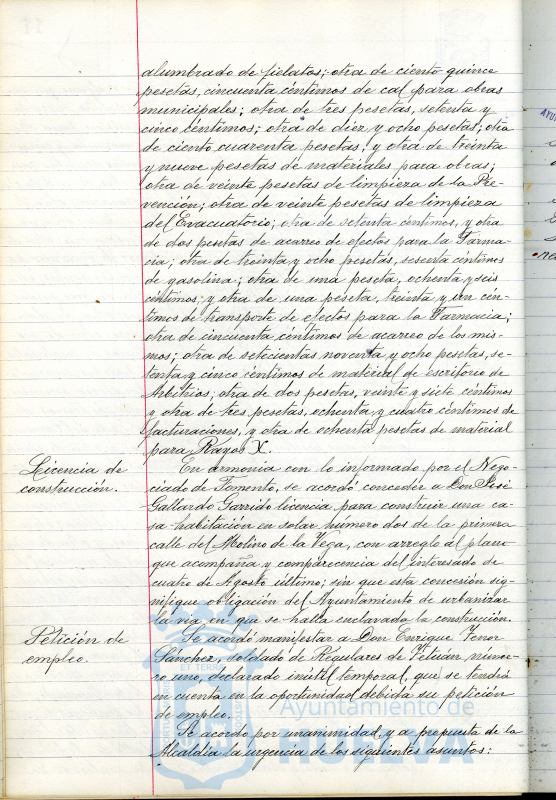 alumbrado de fielatos; otra de ciento quince
pesetas, cincuenta céntimos de cal para obras
municipales; otra de tres pesetas, setenta y
cinco céntimos; otra de diez y ocho pesetas; otra
de ciento cuarenta pesetas, y otra de treinta
y nueve pesetas de materiales para obras;
otra de veinte pesetas de limpieza de la Pre-
vención; otra de veinte pesetas de limpieza
del Evacuatorio; otra de setenta céntimos, y otra
de dos pesetas de acarreo de efectos para la Farma-
cia; otra de treinta y ocho pesetas, sesenta céntimos
de gasolina; otra de una peseta, ochenta y seis
céntimos, y otra de una peseta, treinta y un cén-
timos de transporte de efectos para la Farmacia;
otra de cincuenta céntimos de acarreo de los mis-
mos; otra de setecientas noventa y ocho pesetas, se-
tenta y cinco céntimos de material de escritorio de
Arbitrios; otra de dos pesetas, veinte y siete céntimos
y otra de tres pesetas, ochenta y cuatro céntimos de
facturaciones, y otra de ochenta pesetas de material
para Rayos X.
Licencia de
construcción.
En armonía con lo informado por el Nego-
ciado de Fomento, se acordó conceder a Don José
Gallardo Garrido licencia para construir una ca-
sa-habitación en solar número dos de la primera
calle del Molino de la Vega, con arreglo al plano
que acompaña y comparecencia del interesado de
cuatro de Agosto último; sin que esta concesión sig-
nifique obligación del Ayuntamiento de urbanizar
la vía en que se halla enclavada la construcción.
Petición de
empleo.
Se acordó manifestar a Don Enrique
Sánchez, soldado de Regulares de Tetuán núme-
ro uno, declarado inutil temporal, que se tendrá
en cuenta en la oportunidad debida su petición
de empleo.
Se acordó por unanimidad, y a propuesta de la
Alcaldía la urgencia de los siguientes asuntos:
Ayuntamiento de